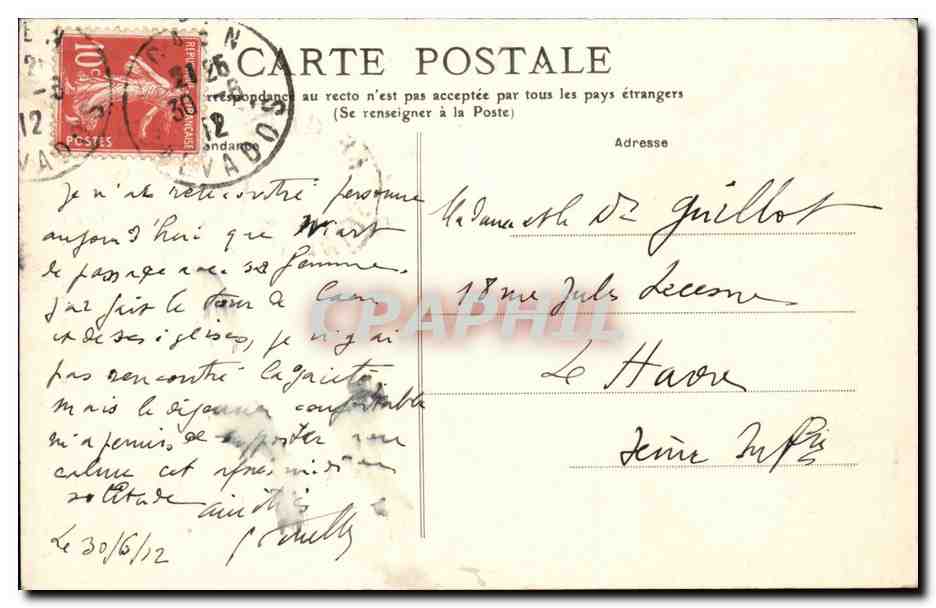 CARTE POSTALE
correspondance au recto n'est pas acceptée par tous les pays étrangers
(Se renseigner à la Poste)
10c
POSTES
CAEN
21 25
30 -6
12
CALVADOS
Adresse
Je n'ai rencontré personne
aujourd'hui que
de passage avec sa femme.
J'ai fait le tour de Caen
et de ses églises, je n'y ai
pas rencontré la gaieté.
Mais le déjeuner confortable
m'a permis de supporter avec
calme cet après midi de
solitude
amitiés
Le 30/6/12
Madame et le Dr Guillot
18 rue Jules Lecesne
Le Havre
Seine Infre
CPAPHIL